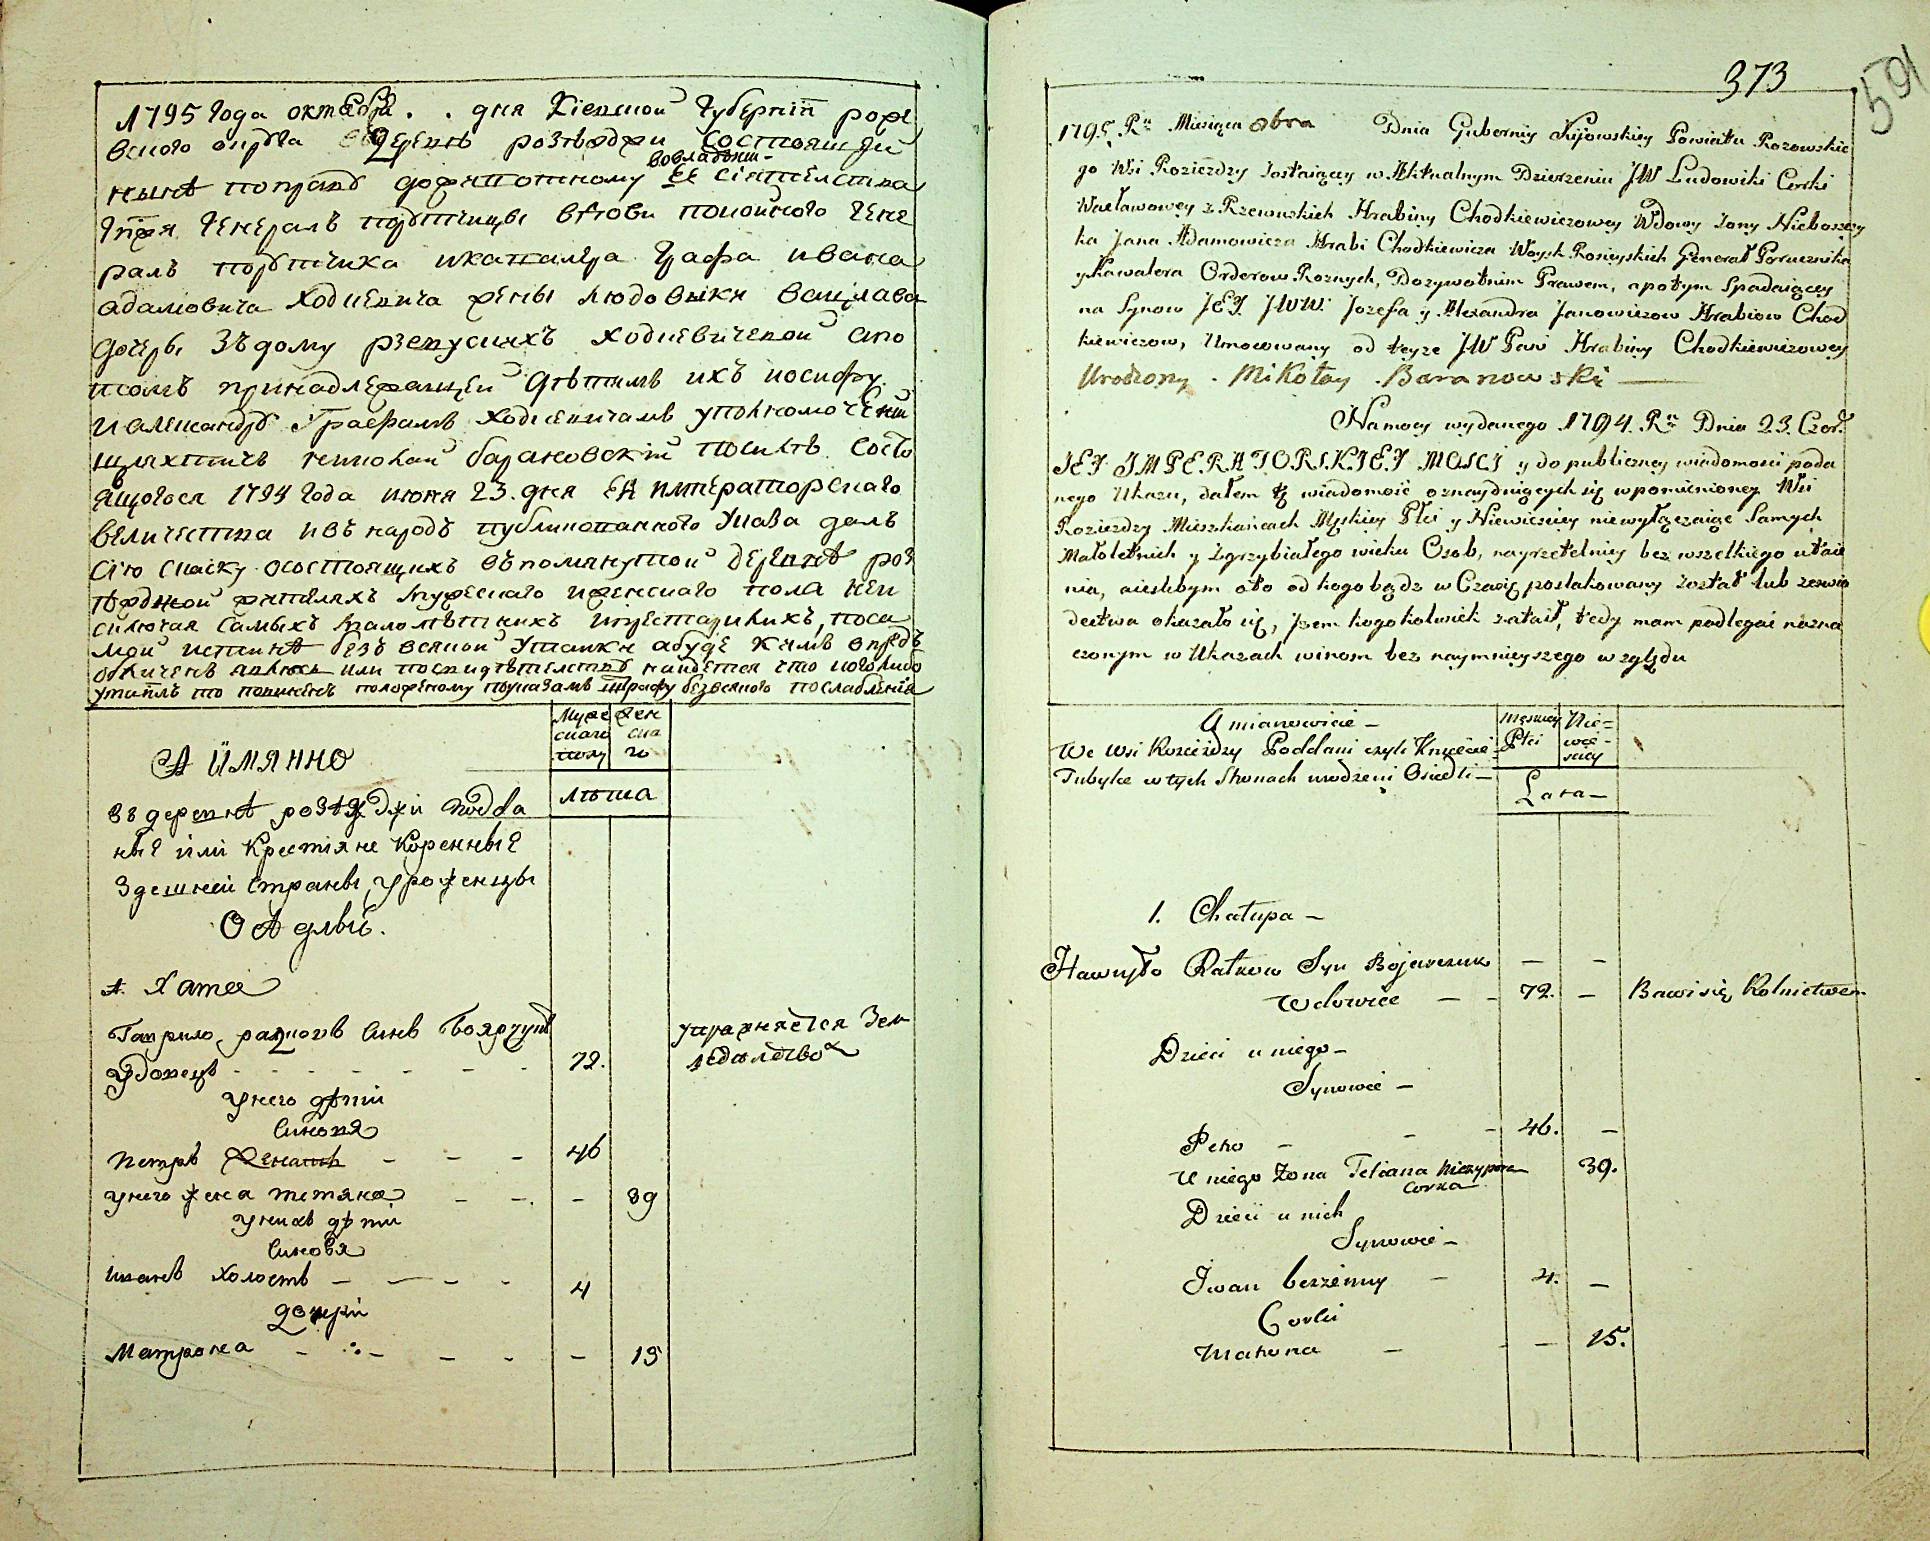 1795 Года октября . . дня Кіевской Губерніи роже
вского округа деревнѣ розѣжджи состоящей
вовладѣнии
нынѣ поправу дожитотному ЕЕ сіятельства
Гпжя Генералъ порутчицы втови покойного Гене
ралъ порутчика икавалера Графа ивана
адамовича Ходкевича жены людовыки вацлава
дочеры Зъдому ржевускихъ ходкевичевой апо
томъ принадлежащей дѣтямъ ихъ иосифу
иалександру Графамъ ходкевичамъ уполномоченій
шляхтичъ николай барановскій посилѣ состо
ящогося 1794 года июня 23. дня ЕЯ императорского
величества ивъ народъ публикованного Указа далъ
сію скаску осостоящихъ въпомянутой деревнѣ роз
ѣжджой жителяхъ мужеского иженского пола неи
сключая самыхъ малолѣтнихъ ипрестарилихъ, поса
мой истиннѣ безъ всякой Утайки абуде кимъ впредъ
обличенъ явлюсь или поскидѣтелству найдется что кого либо
утаилъ то повиненъ положеному поуказамъ штрафу безвсякого послабленія
А ИМЯННО
Муже
ского
полу
жен
ска
го
лѣта
Въ деревнѣ розѣжджи подда
ныё или Крестіяне Коренныё
Здешней страны, уроженцы
ОАдлые.
А. Хата
Гаврило рацковъ синъ Боярчукъ
удовецъ - - - - - - 72. упражняется Зем
леделство
унего дѣти
синовя
Петръ - - - 46
унего жена тетяна - - - 39
унихъ дѣти
синовя
иванъ холостъ - - - - 4
дочери
Матрона - - - - - 15
373
591
1795. Ru Miesiąca 8bra Dnia Gubernij Kijowskiey Powiatu Rozowskie
go Wsi Rozieżdzy zostaiącey w Aktualnym Dzierzeniu JW Ludowiki Corki
Wacławowey z Rzewuskich Hrabiny Chodkiewiczowey Wdowy żony Nieboszczy
ka Jana Adamowicza Hrabi Chodkiewicza Woysk Rosyyskich Generał Porucznika
y Kawalera Orderow Roznych, Dozywotnim Prawem, apotym Spadaiącey
na Synow JEJ JWW. Jozefa y Alexandra Janowiczow Hrabiow Chod
kiewiczow, Umocowany od teyze JW Pani Hrabiny Chodkiewiczowey
Urodzony . Mikołay . Baranowski —
Namocy wydanego 1794. Ru Dnia 23. Czer.
JEJ IMPERATORSKIEJ MOSCI y do publiczney wiadomosci poda
nego Ukazu, dałem tę wiadomość oznayduiących się wpomienioney Wsi
Rozieżdzy Mieszkańcach Męskiey Płci y Niewiesciey niewyłączaiąc Samych
Małoletnich y zgrzybiałego wieku Osob, nayrzetelniey bez wszelkiego utaie
nia, aieslibym oto od kogo bądz w Czasię poslakowany został lub zeswia
dectwa okazało się, żzem kogokolwiek zataił, tedy mam podlegać nazna
czonym w Ukazach winom bez naymnieyszego względu
Amianowicie —
We Wsi Rozieżdzy Poddani czyli Kmiecie
Tubylce wtych Stronach urodzeni Osiedli —
Męskiey
Płci
Nie=
wie-
sciey
Lata —
1. Chałupa —
Hawryło Ratkow Syn Bojarczuk — —
Wdowiec — — 72. — Bawi się Rolnictwem
Dzieci u niego —
Synowie —
Petro — — — 46. —
U niego Zona Teliana Niczypora
Corka 39.
Dzieci u nich
Synowie —
Jwan bezżenny — 4. —
Corki
Matrona — — — 15.